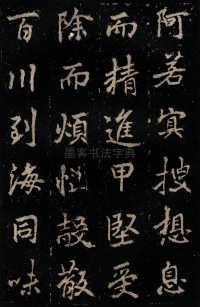 阿若冥搜想息
而精進甲堅受
除而煩惱殼散
百川到海同味
墨客书法字典